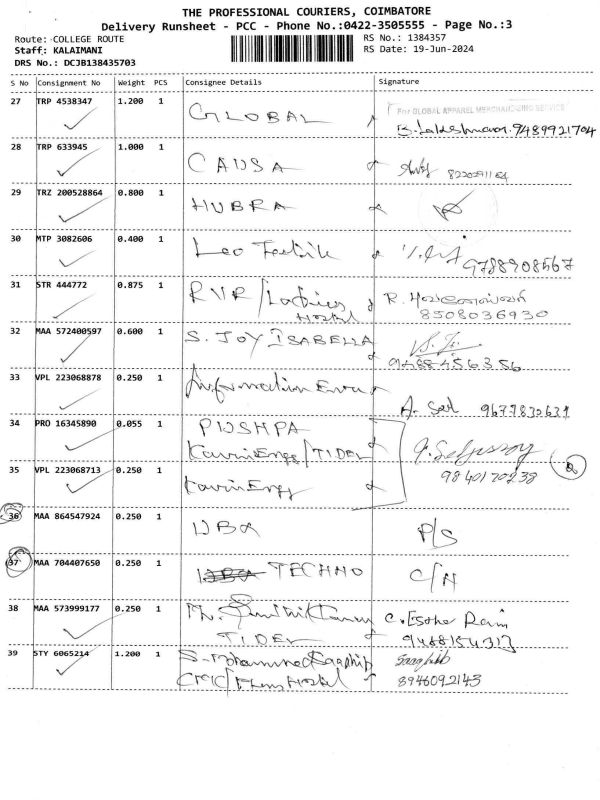 THE PROFESSIONAL COURIERS, COIMBATORE
Delivery Runsheet - PCC - Phone No.:0422-3505555 - Page No.:3
Route: COLLEGE ROUTE RS No.: 1384357
Staff: KALAIMANI RS Date: 19-Jun-2024
DRS No.: DCJB138435703
S No Consignment No Weight PCS Consignee Details Signature
27 TRP 4538347 1.200 1 GLOBAL For GLOBAL APPAREL MERCHANDISING SERVICE
9489921704
28 TRP 633945 1.000 1 CAUSA
29 TRZ 200528864 0.800 1 HUBRA
30 MTP 3082606 0.400 1 Leo
9788908567
31 STR 444772 0.875 1 RVR/Ladies R.
Hostel 8508036930
32 MAA 572400597 0.600 1 S. JOY ISABELLA
9488456356
33 VPL 223068878 0.250 1 Information
A. 9677830631
34 PRO 16345890 0.055 1 PUSHPA
KavinEngg/TIDEL
35 VPL 223068713 0.250 1 KavinEngg 9840170238 2
36 MAA 864547924 0.250 1 UBA P/S
37 MAA 704407650 0.250 1 TECHNO C/N
38 MAA 573999177 0.250 1 C. Esther Rani
TIDEL 9488154313
39 STY 6065214 1.200 1 S. Mohammed
CMC/ Hostel 8946092143